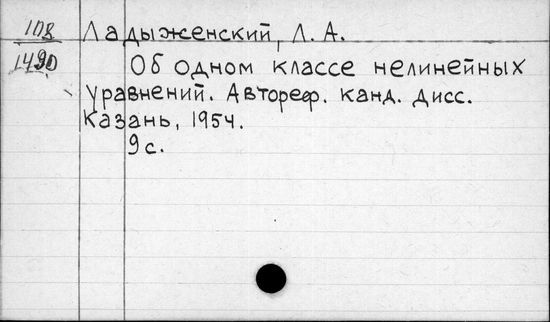 Ладыженский, Л. А.
1490
Об одном классе нелинейных
уравнений. Автореф. канд. дисс.
Казань, 1954.
9 с.